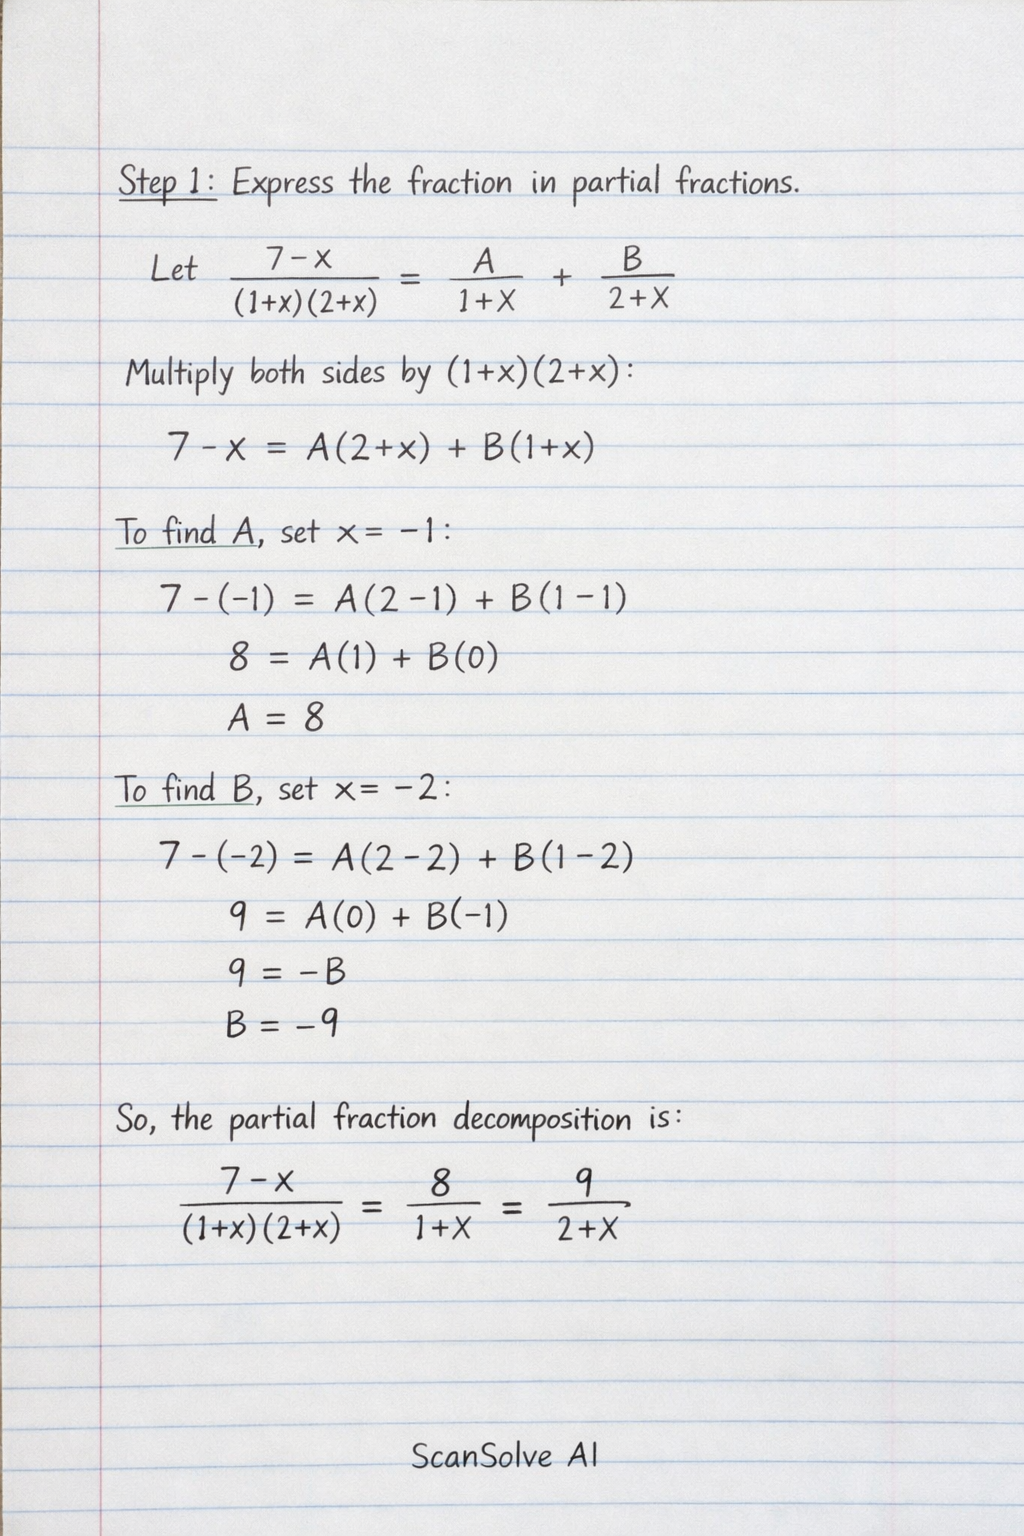 Step 1: Express the fraction in partial fractions.
Let (7-x)/((1+x)(2+x)) = A/(1+x) + B/(2+x)
Multiply both sides by (1+x)(2+x):
7-x = A(2+x) + B(1+x)
To find A, set x= -1:
7-(-1) = A(2-1) + B(1-1)
8 = A(1) + B(0)
A = 8
To find B, set x= -2:
7-(-2) = A(2-2) + B(1-2)
9 = A(0) + B(-1)
9 = -B
B = -9
So, the partial fraction decomposition is:
(7-x)/((1+x)(2+x)) = 8/(1+x) = 9/(2+x)
ScanSolve AI